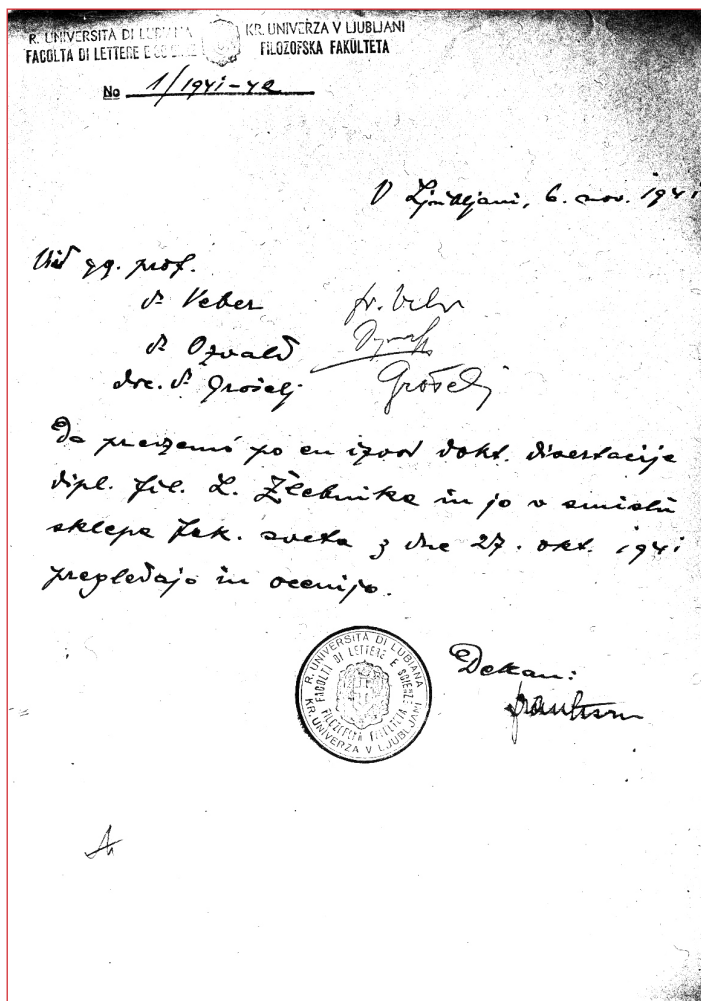 R. UNIVERSITÀ DI LUBIANA
FACOLTÀ DI LETTERE E SCIENZE
KR. UNIVERZA V LJUBLJANI
FILOZOFSKA FAKULTETA
No 1/1941-42
V Ljubljani, 6. nov. 1941
gg. prof.
dr Veber fr. Veber
dr Ozvald
doc. dr Grošelj Grošelj
Da prevzemó po en izvod dokt. disertacije
dipl. fil. L. Žlebnika in jo v smislu
sklepa fak. sveta z dne 27. okt. 1941
pregledajo in ocenijo.
Dekan:
R. UNIVERSITÀ DI LUBIANA
FACOLTÀ DI LETTERE E SCIENZE
FILOZOFSKA FAKULTETA
KR. UNIVERZA V LJUBLJANI